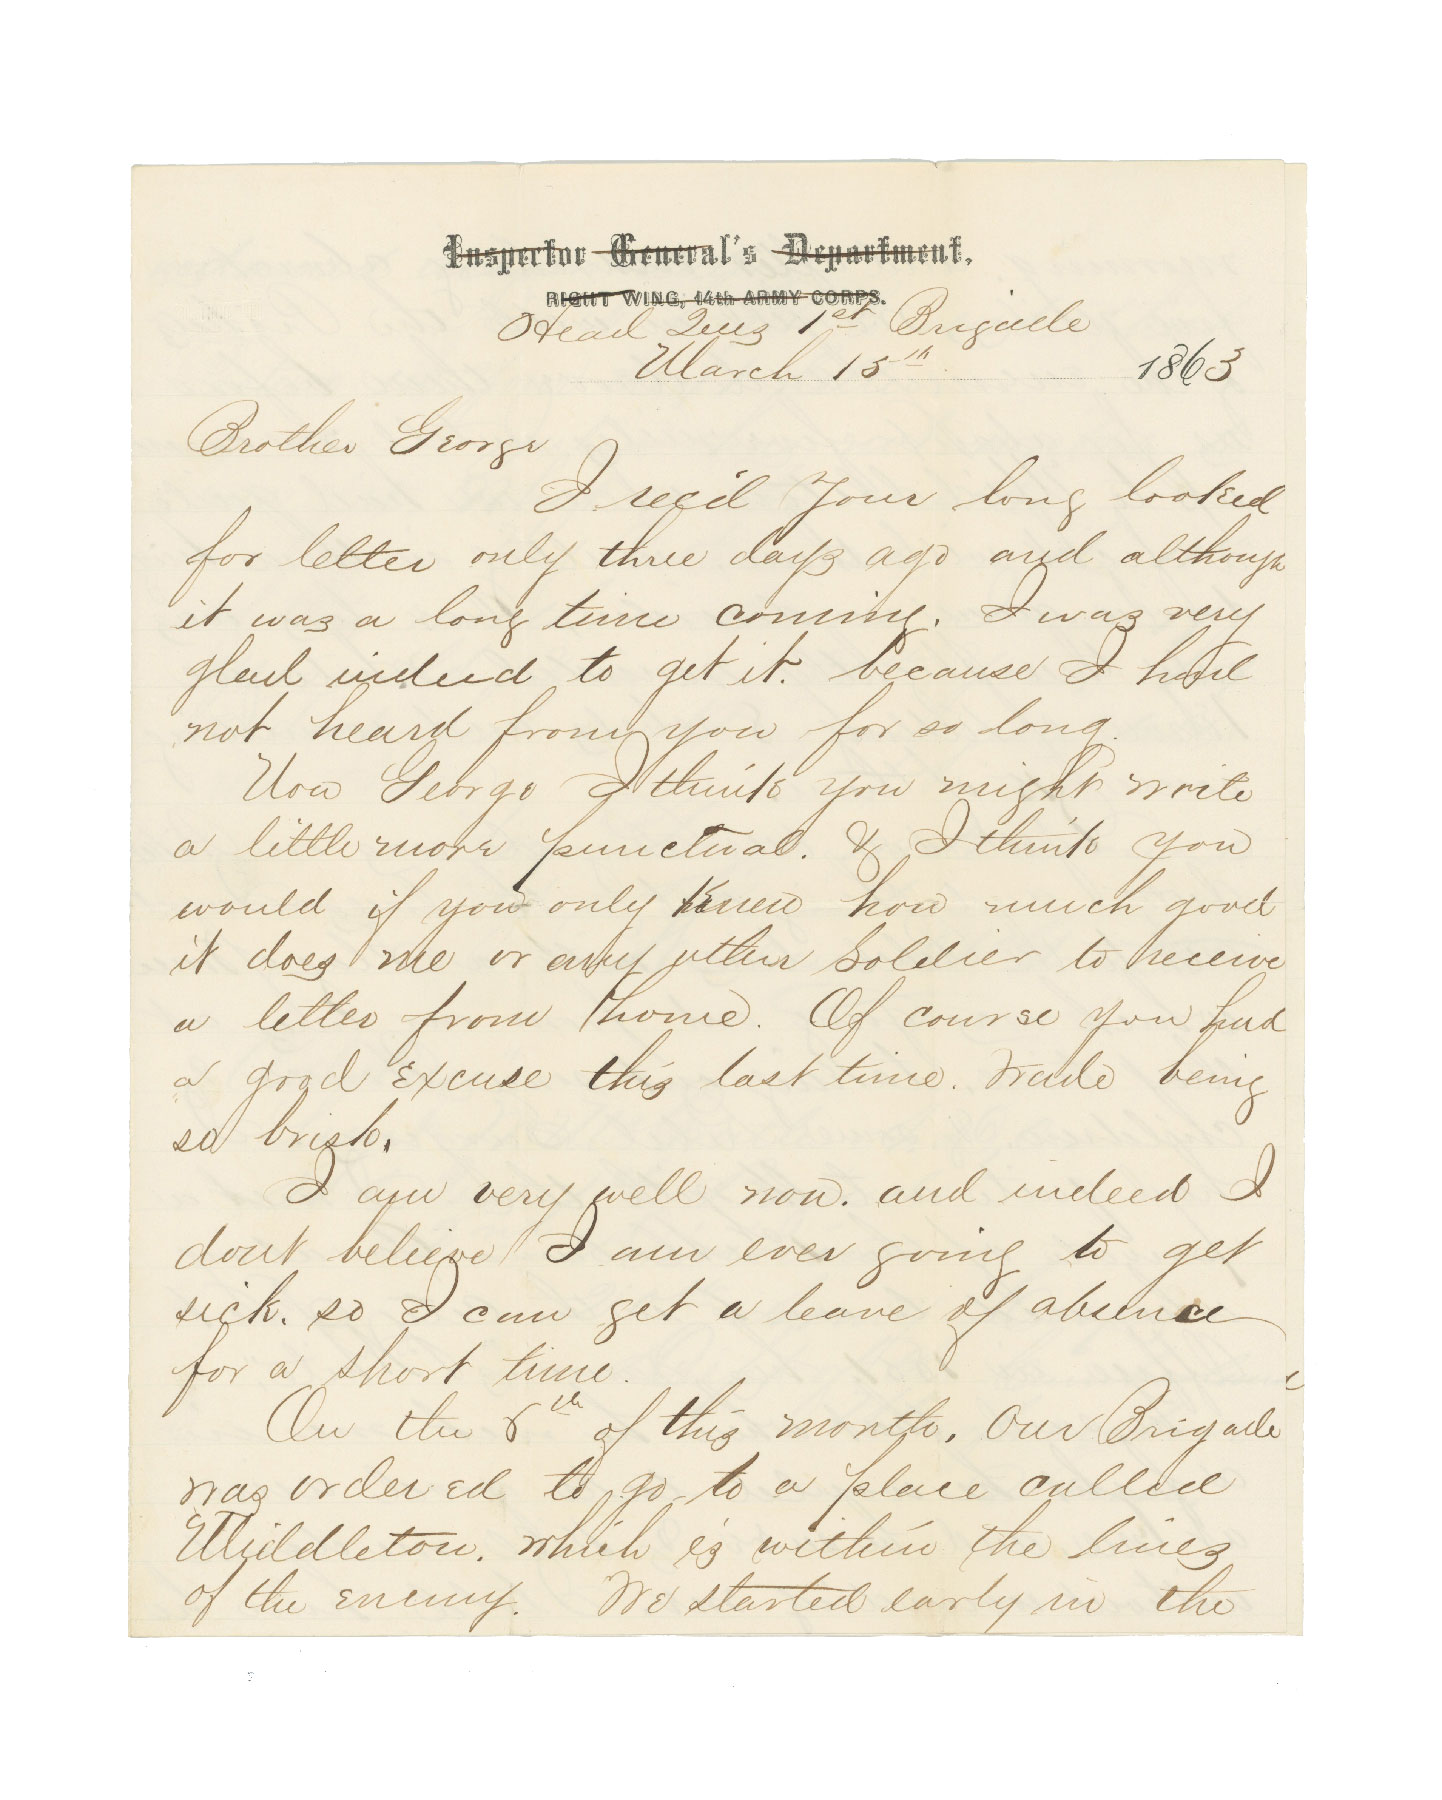 Inspector General's Department,
RIGHT WING, 14th ARMY CORPS.
Head Qurs 1st Brigade
March 15th 1863
Brother George
I rec'd your long looked
for letter only three days ago and although
it was a long time coming. I was very
glad indeed to get it. because I had
not heard from you for so long.
Now George I think you might write
a little more punctual. & I think you
would if you only knew how much good
it does me or any other Soldier to receive
a letter from home. Of course you had
a good excuse this last time. Trade being
so brisk.
I am very well now. and indeed I
dont believe I am ever going to get
sick. so I can get a leave of absence
for a short time.
On the of this month. Our Brigade
was ordered to go to a place called
Middleton. which is within the lines
of the enemy. We started early in the